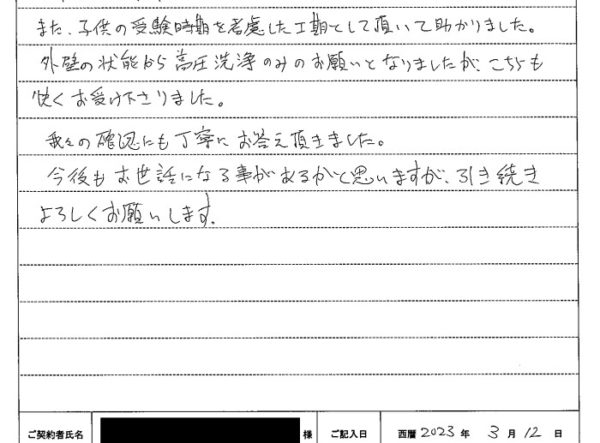 また、子供の受験時期を考慮した工期として頂いて助かりました。
外壁の状態から高圧洗浄のみのお願いとなりましたが、こちらも
快くお受け下さりました。
我々の確認にも丁寧にお答え頂きました。
今後もお世話になる事があるかと思いますが、引き続き
よろしくお願いします。
ご契約者氏名 様 ご記入日 西暦 2023 年 3 月 12 日